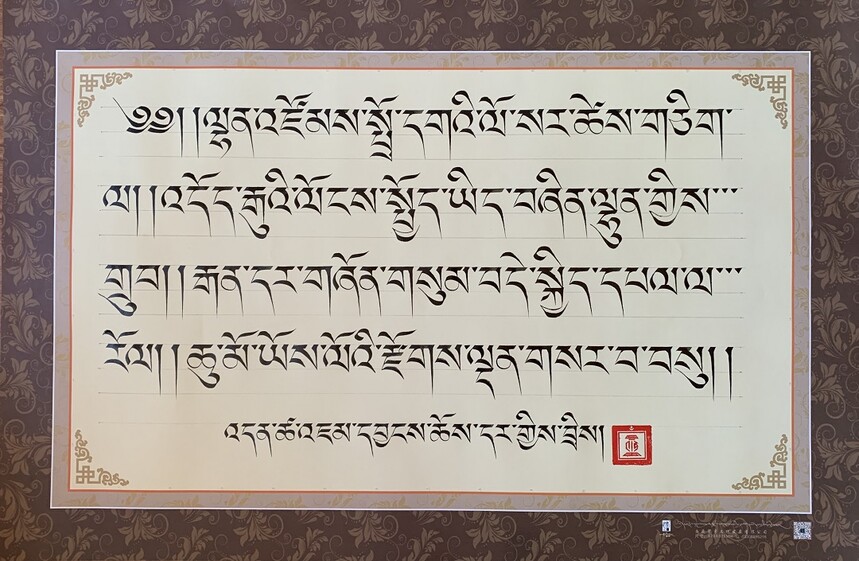 ༄༅། །ལྷན་འཛོམས་སྤྲོ་དགའི་ལོ་སར་ཚེས་གཅིག་
ལ། །འདོད་རྒུའི་ལོངས་སྤྱོད་ཡིད་བཞིན་ལྷུན་གྱིས་་་
གྲུབ། །རྒན་དར་གཞོན་གསུམ་བདེ་སྐྱིད་དཔལ་ལ་་་
རོལ། །ཆུ་མོ་ཡོས་ལོའི་རྫོགས་ལྡན་གསར་བ་བསུ། །
འདན་ཚ་འཇམ་དབྱངས་ཆོས་དར་གྱིས་བྲིས།